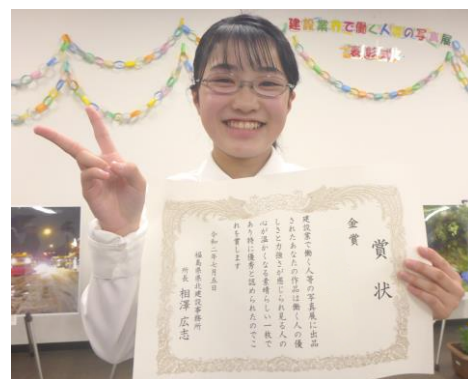 建設業界で働く人等の写真展
表彰式
賞状
金賞
建設業で働く人等の写真展に出品
されたあなたの作品は働く人の優
しさと力強さが感じられ見る人の
心が温かくなる素晴らしい一枚で
あり特に優秀と認められたのでこ
れを賞します
令和二年七月五日
福島県県北建設事務所
所長 相澤広志